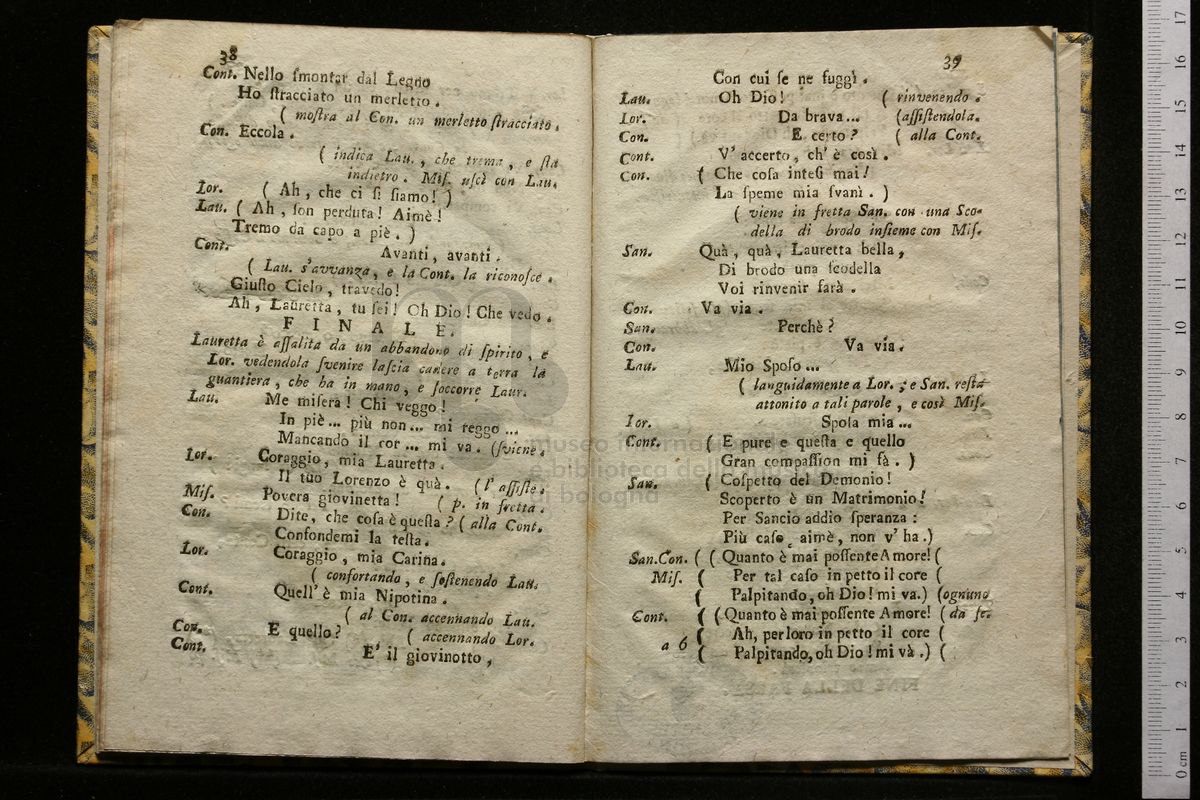 38
Cont. Nello ſmontar dal Legno
Ho ſtracciato un merletto.
( moſtra al Con. un merletto ſtracciato.
Con. Eccola.
( indica Lau., che trema, e ſta
indietro. Miſ. uſcì con Lau.
Lor. ( Ah, che ci ſi ſiamo! )
Lau. ( Ah, ſon perduta! Aimè!
Tremo da capo a piè. )
Cont. Avanti, avanti.
( Lau. s'avvanza, e la Cont. la riconoſce.
Giuſto Cielo, travedo!
Ah, Lauretta, tu ſei! Oh Dio! Che vedo.
FINALE.
Lauretta è aſſalita da un abbandono di ſpirito, e
Lor. vedendola ſvenire laſcia cadere a terra la
guantiera, che ha in mano, e ſoccorre Laur.
Lau. Me miſera! Chi veggo!
In piè... più non... mi reggo...
Mancando il cor... mi va. (ſviene.
Lor. Coraggio, mia Lauretta.
Il tuo Lorenzo è quà. (l'aſſiſte.
Miſ. Povera giovinetta! ( p. in fretta.
Con. Dite, che coſa è queſta? ( alla Cont.
Confondemi la teſta.
Lor. Coraggio, mia Carina.
( confortando, e ſoſtenendo Lau.
Cont. Quell' è mia Nipotina.
( al Con. accennando Lau.
Con. E quello? ( accennando Lor.
Cont. E' il giovinotto,
39
Con cui ſe ne fuggì.
Lau. Oh Dio! ( rinvenendo.
Lor. Da brava... (aſſiſtendola.
Con. E certo? ( alla Cont.
Cont. V' accerto, ch' è così.
Con. ( Che coſa inteſi mai!
La ſpeme mia ſvanì. )
( viene in fretta San. con una Sco-
della di brodo inſieme con Miſ.
San. Quà, quà, Lauretta bella,
Di brodo una ſcodella
Voi rinvenir farà.
Con. Va via.
San. Perchè?
Con. Va via.
Lau. Mio Spoſo...
( languidamente a Lor.; e San. reſta
attonito a tali parole, e così Miſ.
Lor. Spoſa mia...
Cont. ( E pure e queſta e quello
Gran compaſſion mi fà. )
San. ( Coſpetto del Demonio!
Scoperto è un Matrimonio!
Per Sancio addio ſperanza:
Più caſo, aimè, non v' ha.)
San.Con. ( ( Quanto è mai poſſente Amore! (
Miſ. ( Per tal caſo in petto il core (
( Palpitando, oh Dio! mi va.) (ognuno
Cont. ( (Quanto è mai poſſente Amore! (da ſe.
a 6 ( Ah, per loro in petto il core (
( Palpitando, oh Dio! mi và.) (
museo internazionale
e biblioteca della musica
di bologna
0 cm 1 2 3 4 5 6 7 8 9 10 11 12 13 14 15 16 17